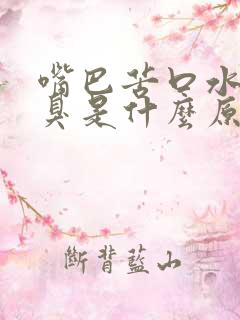 嘴巴苦口水
臭是什麼原
斷背藍山